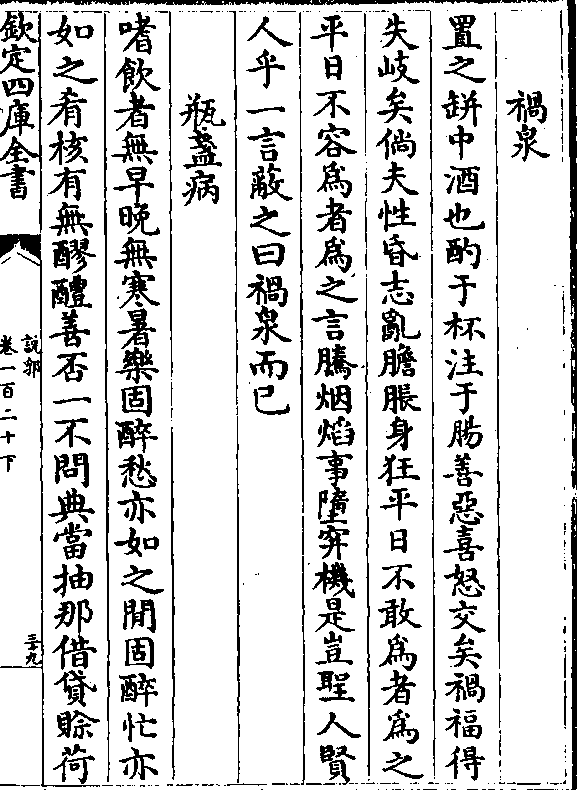 禍泉
置之缾中酒也酌于杯注于腸善惡喜怒交矣禍福得
失岐矣倘夫性昏志亂膽脹身狂平日不敢為者為之
平日不容為者為之言騰烟焰事墮穽機是豈聖人賢
人乎一言蔽之曰禍泉而已
瓶盞病
嗜飲者無早晚無寒暑樂固醉愁亦如之閒固醉忙亦
如之肴核有無醪醴善否一不問典當抽那借貸賒荷
欽定四庫全書
說郛
卷一百二十下
三十九